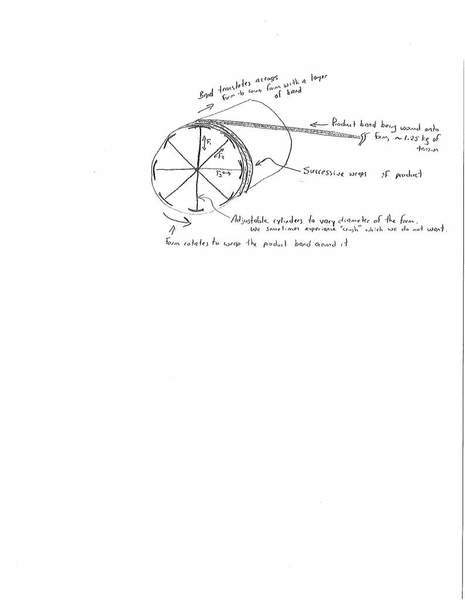 Band translates across
form to cover form with a layer
of band
← Product band being wound onto
form, ~ 1.25 kg of
tension
F₁
F₂
F₃
Successive wraps of product
Adjustable cylinders to vary diameter of the form.
We sometimes experience "crush" which we do not want.
Form rotates to wrap the product band around it